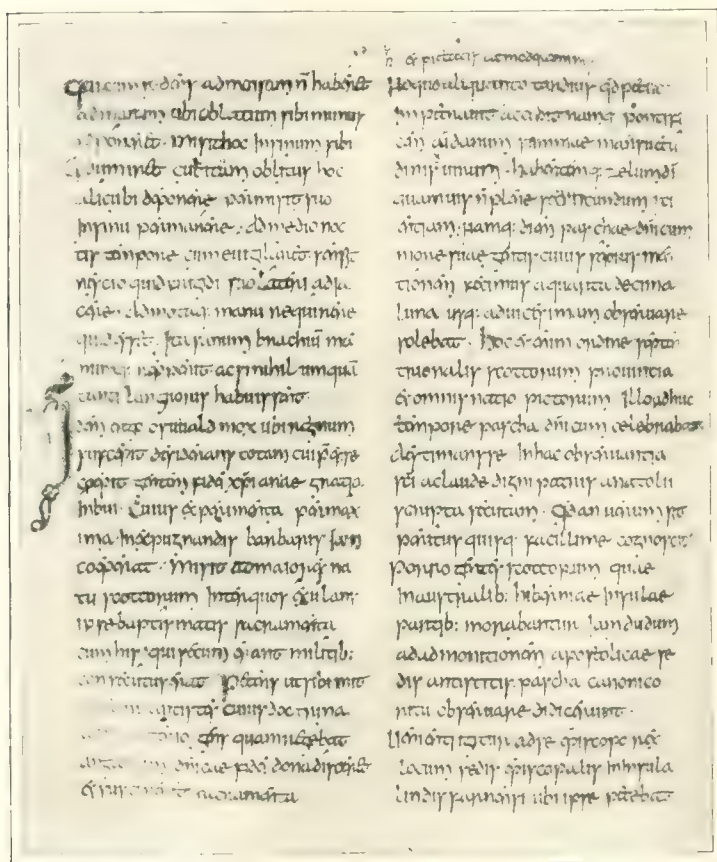 Qui cum n̄ dens admensam n̄ haberet
admanum ubi oblatum sibi munus
reponeret. misit hoc insinum sibi
Et dum iret cubitum oblitus hoc
alicubi deponere permisit suo
insinu permanere. At medio noc
tis tempore cum euigilaret sensit
nescio quid frigidi suo lateri adia
cere. Admotaq: manu requirere
quid esset. Ita sanum brachiū ma
numq: repperit ac si nihil umquā
tanti languoris habuissent.
Idem osuald mox ubi regnum
suscepit desiderans totam cui p̄eesse
coepit gentem fidei xp̄ianae gratia
inbui. Cuius experimenta permax
ima inexpugnandis barbaris iam
coeperat. Misit admaiores na
tu scottorum inter quos exulans
ipse baptismatis sacramenta
cum his qui secum erant militib:
consecutus erat. Petens ut sibi mit
antistes cuius doctrina
gens quam regebat
dn̄icae fidei dona disceret
et susciperet sacramenta
et pietatis ac moderamin
Nequealiquanto tardius qd̄ petiit
inpetrauit accepit namq: pontifi
cem aidanum summae mansuetu
dinis uirum. habentemq: zelum dī
quamuis n̄ plene secundum sci
entiam. Namq: diem paschae dn̄icum
more suae gentis cuius sepius men
tionem fecimus aquarta decima
luna usq: aduicesimam obseruare
solebat. Hoc etenim ordine septen
trionalis scottorum prouincia
et omnis natio pictorum illoadhuc
tempore pascha dn̄icum celebrabat
aestimansse Inhac obseruantia
sc̄i aclaude digni patris anatolii
scripta secutam. Quod an uerum sit
peritus quisq: facillime cognoscit.
Porro gentes scottorum quae
Inaustralib: hiberniae insulae
partib: morabantur iamdudum
adadmonitionem apostolicae se
dis antistitis pascha canonico
ritu obseruare didicerunt.
Uenienti igitur adse episcopo rex
locum sedis episcopalis in insula
lindisfarnensi ubi ipse petebat